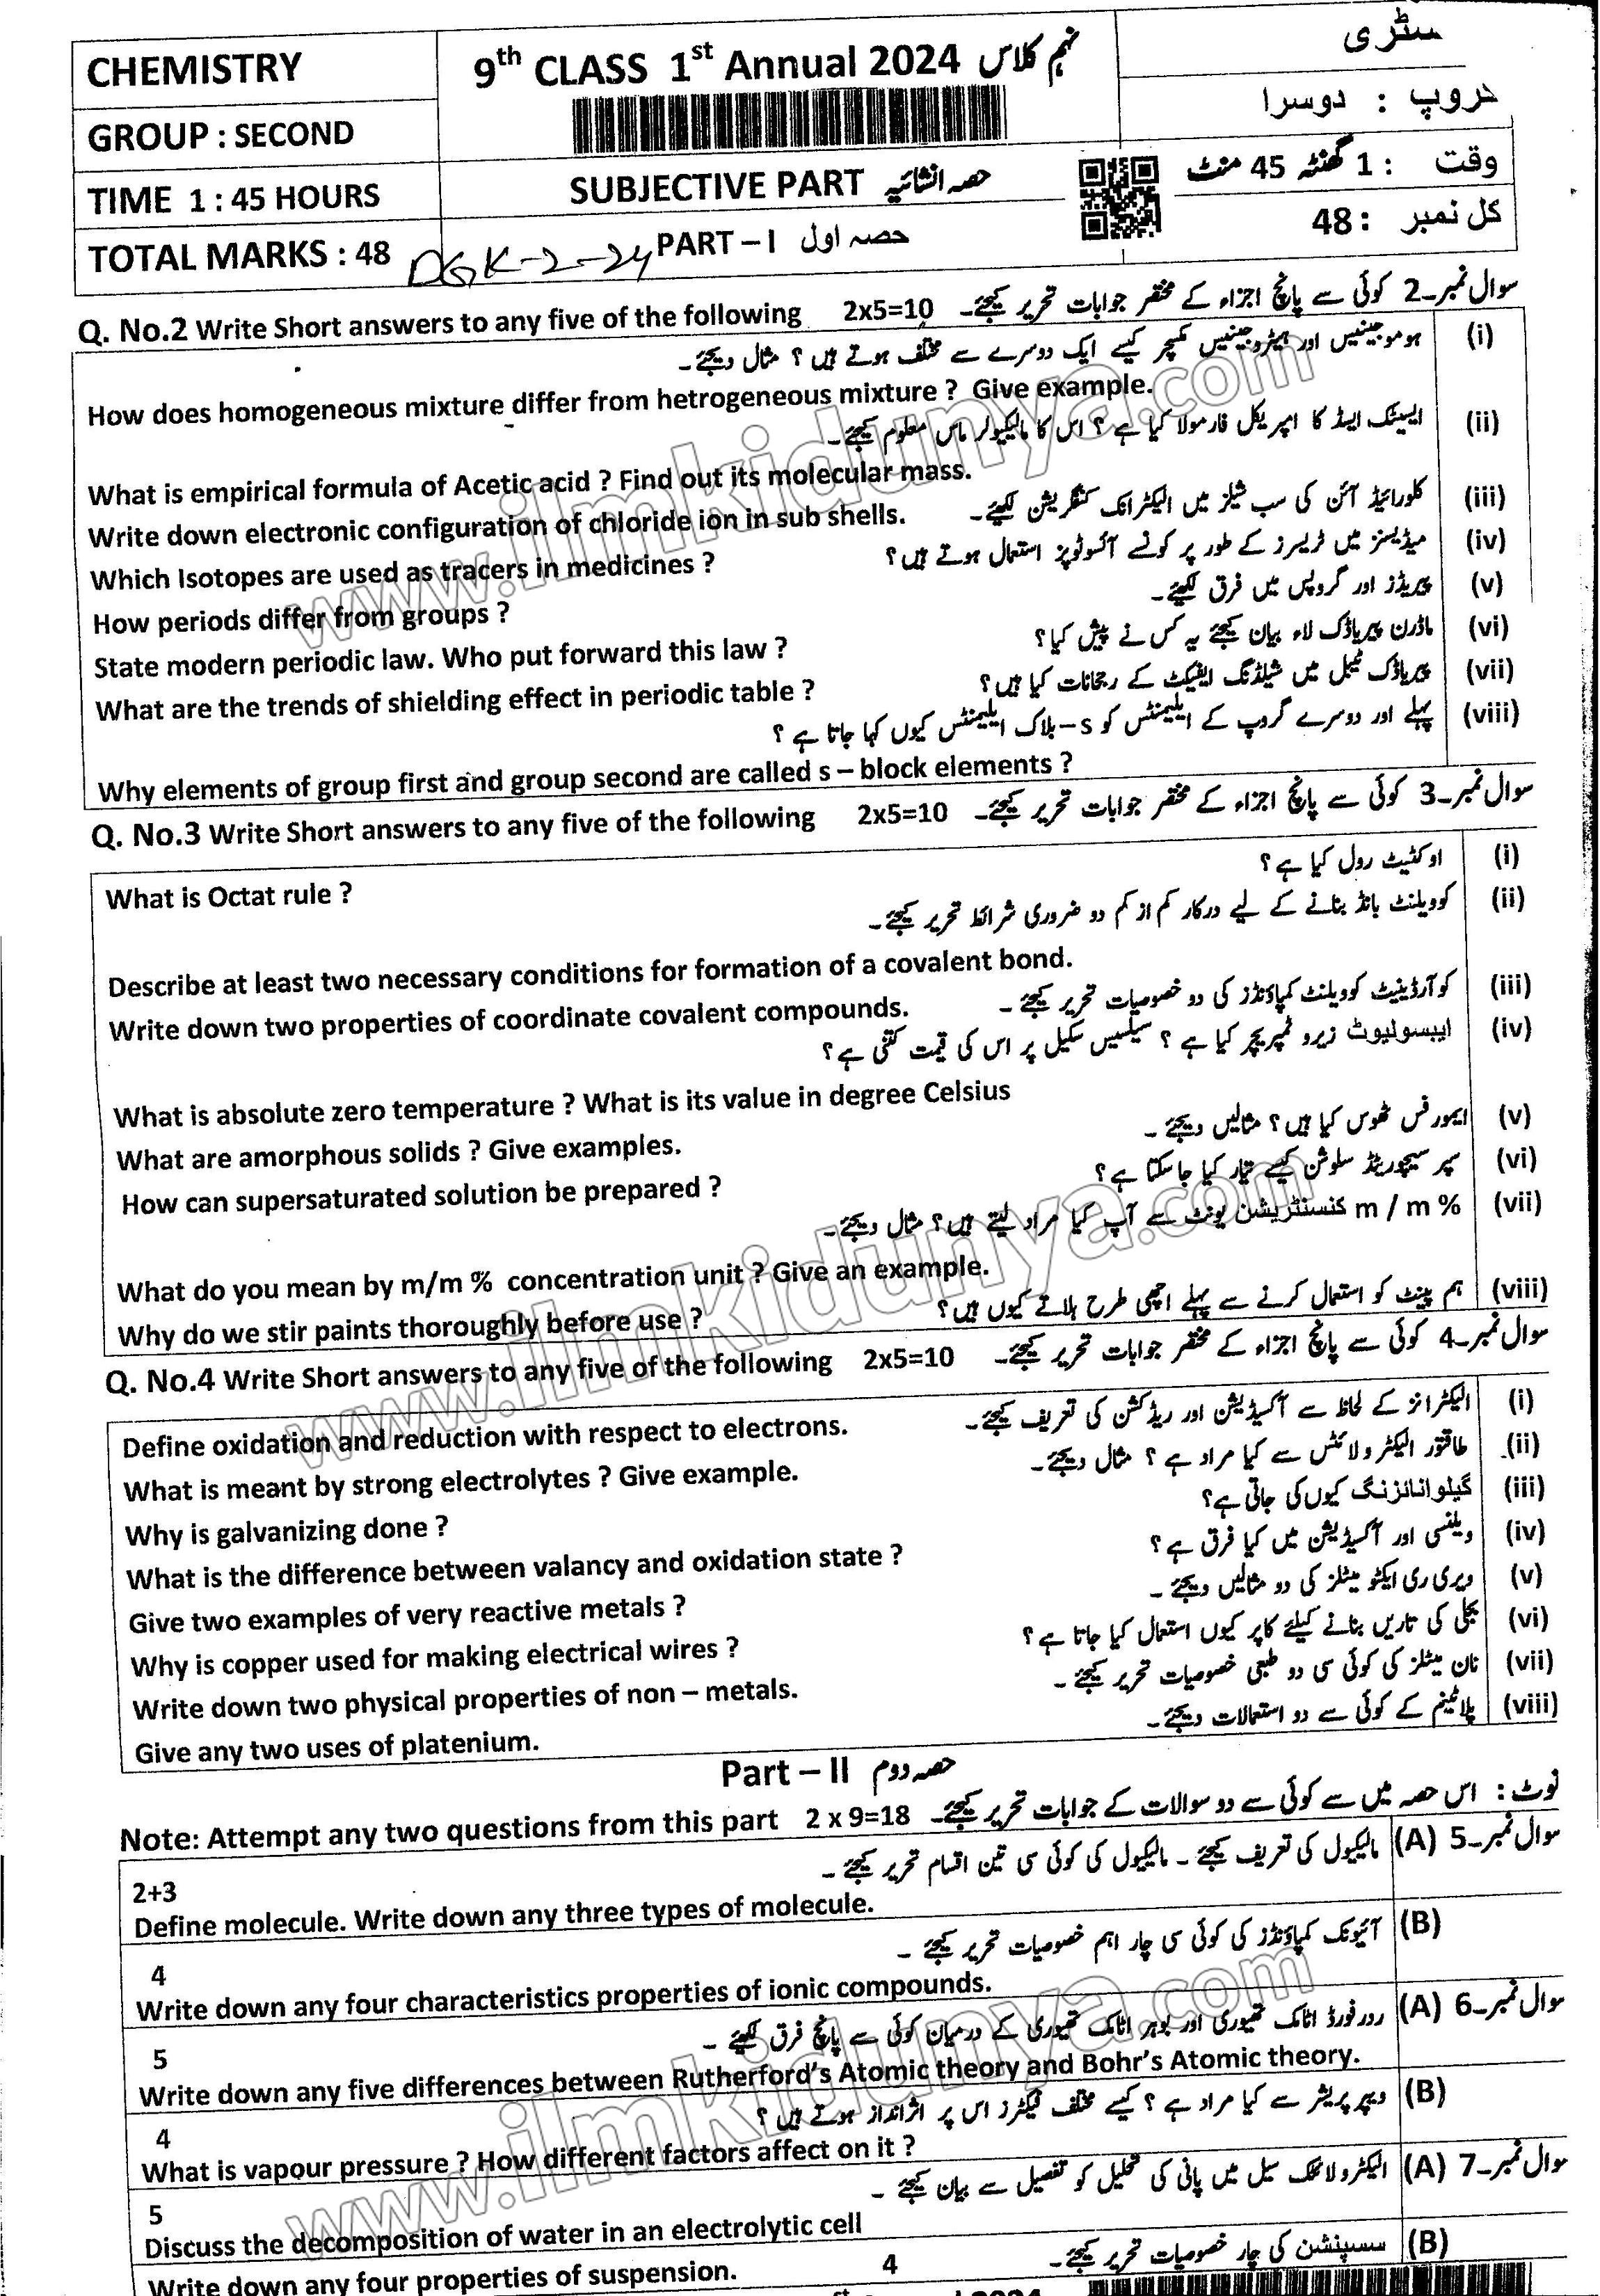 CHEMISTRY
9th CLASS 1st Annual 2024 نہم کلاس
سٹری
GROUP : SECOND
گروپ : دوسرا
TIME 1 : 45 HOURS
SUBJECTIVE PART حصہ انشائیہ
وقت : 1 گھنٹہ 45 منٹ
TOTAL MARKS : 48
DGK-2-24
PART – I حصہ اول
کل نمبر : 48
سوال نمبر۔2 کوئی سے پانچ اجزاء کے مختصر جوابات تحریر کیجئے۔
Q. No.2 Write Short answers to any five of the following 2x5=10
(i) ہوموجینیئس اور ہیٹروجینیئس مکسچر کیسے ایک دوسرے سے مختلف ہوتے ہیں ؟ مثال دیجئے۔
How does homogeneous mixture differ from hetrogeneous mixture ? Give example.
(ii) ایسیٹک ایسڈ کا امپریکل فارمولا کیا ہے ؟ اس کا مالیکیولر ماس معلوم کیجئے۔
What is empirical formula of Acetic acid ? Find out its molecular mass.
(iii) کلورائیڈ آئن کی سب شیلز میں الیکٹرانک کنفگریشن لکھیئے۔
Write down electronic configuration of chloride ion in sub shells.
(iv) میڈیسنز میں ٹریسرز کے طور پر کونسے آئسوٹوپز استعمال ہوتے ہیں؟
Which Isotopes are used as tracers in medicines ?
(v) پیریڈز اور گروپس میں فرق لکھیئے۔
How periods differ from groups ?
(vi) ماڈرن پیریاڈک لاء بیان کیجئے یہ کس نے پیش کیا؟
State modern periodic law. Who put forward this law ?
(vii) پیریاڈک ٹیبل میں شیلڈنگ ایفیکٹ کے رجحانات کیا ہیں؟
What are the trends of shielding effect in periodic table ?
(viii) پہلے اور دوسرے گروپ کے ایلیمنٹس کو s–بلاک ایلیمنٹس کیوں کہا جاتا ہے ؟
Why elements of group first and group second are called s – block elements ?
سوال نمبر۔3 کوئی سے پانچ اجزاء کے مختصر جوابات تحریر کیجئے۔
Q. No.3 Write Short answers to any five of the following 2x5=10
(i) اوکٹیٹ رول کیا ہے ؟
What is Octat rule ?
(ii) کوویلنٹ بانڈ بنانے کے لیے درکار کم از کم دو ضروری شرائط تحریر کیجئے۔
Describe at least two necessary conditions for formation of a covalent bond.
(iii) کوآرڈینیٹ کوویلنٹ کمپاؤنڈز کی دو خصوصیات تحریر کیجئے۔
Write down two properties of coordinate covalent compounds.
(iv) ایبسولیوٹ زیرو ٹمپریچر کیا ہے ؟ سیلسیس سکیل پر اس کی قیمت کتنی ہے ؟
What is absolute zero temperature ? What is its value in degree Celsius
(v) ایمورفس ٹھوس کیا ہیں؟ مثالیں دیجئے۔
What are amorphous solids ? Give examples.
(vi) سپر سیچوریٹڈ سلوشن کیسے تیار کیا جا سکتا ہے؟
How can supersaturated solution be prepared ?
(vii) m / m % کنسنٹریشن یونٹ سے آپ کیا مراد لیتے ہیں؟ مثال دیجئے۔
What do you mean by m/m % concentration unit ? Give an example.
(viii) ہم پینٹ کو استعمال کرنے سے پہلے اچھی طرح ہلاتے کیوں ہیں؟
Why do we stir paints thoroughly before use ?
سوال نمبر۔4 کوئی سے پانچ اجزاء کے مختصر جوابات تحریر کیجئے۔
Q. No.4 Write Short answers to any five of the following 2x5=10
(i) الیکٹرانز کے لحاظ سے آکسیڈیشن اور ریڈکشن کی تعریف کیجئے۔
Define oxidation and reduction with respect to electrons.
(ii) طاقتور الیکٹرولائٹس سے کیا مراد ہے ؟ مثال دیجئے۔
What is meant by strong electrolytes ? Give example.
(iii) گیلوانائزنگ کیوں کی جاتی ہے؟
Why is galvanizing done ?
(iv) ویلنسی اور آکسیڈیشن میں کیا فرق ہے ؟
What is the difference between valancy and oxidation state ?
(v) ویری ری ایکٹو میٹلز کی دو مثالیں دیجئے۔
Give two examples of very reactive metals ?
(vi) بجلی کی تاریں بنانے کیلئے کاپر کیوں استعمال کیا جاتا ہے؟
Why is copper used for making electrical wires ?
(vii) نان میٹلز کی کوئی سی دو طبعی خصوصیات تحریر کیجئے۔
Write down two physical properties of non – metals.
(viii) پلاٹینم کے کوئی سے دو استعمالات دیجئے۔
Give any two uses of platenium.
Part – II حصہ دوم
نوٹ : اس حصہ میں سے کوئی سے دو سوالات کے جوابات تحریر کیجئے۔
Note: Attempt any two questions from this part 2 x 9=18
سوال نمبر۔5 (A) مالیکیول کی تعریف کیجئے۔ مالیکیول کی کوئی سی تین اقسام تحریر کیجئے۔
2+3
Define molecule. Write down any three types of molecule.
(B) آئیونک کمپاؤنڈز کی کوئی سی چار اہم خصوصیات تحریر کیجئے۔
4
Write down any four characteristics properties of ionic compounds.
سوال نمبر۔6 (A) ردرفورڈ اٹامک تھیوری اور بوہر اٹامک تھیوری کے درمیان کوئی سے پانچ فرق لکھئے۔
5
Write down any five differences between Rutherford's Atomic theory and Bohr's Atomic theory.
(B) ویپر پریشر سے کیا مراد ہے ؟ کیسے مختلف فیکٹرز اس پر اثرانداز ہوتے ہیں ؟
4
What is vapour pressure ? How different factors affect on it ?
سوال نمبر۔7 (A) الیکٹرولائٹک سیل میں پانی کی تحلیل کو تفصیل سے بیان کیجئے۔
5
Discuss the decomposition of water in an electrolytic cell
(B) سسپنشن کی چار خصوصیات تحریر کیجئے۔
Write down any four properties of suspension. 4
www.ilmkidunya.com
www.ilmkidunya.com
www.ilmkidunya.com